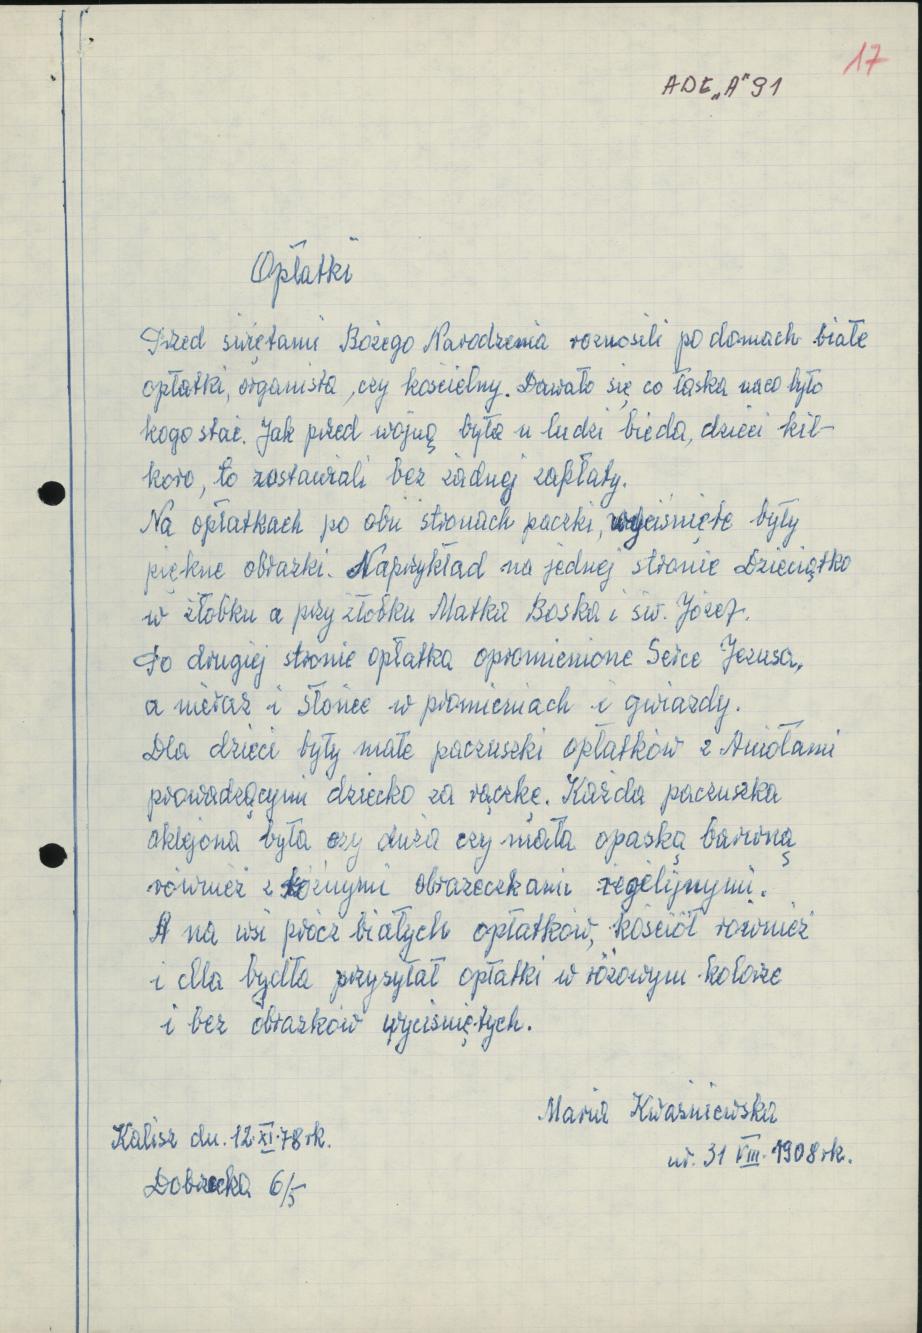 17
ADE „A" 91
Opłatki
Przed świętami Bożego Narodzenia roznosili po domach białe
opłatki, organista, czy kościelny. Dawało się co łaska naco było
kogo stać. Jak przed wojną była u ludzi bieda, dzieci kil-
koro, to zostawiali bez żadnej zapłaty.
Na opłatkach po obu stronach paczki, wyciśnięte były
piękne obrazki. Naprzykład na jednej stronie Dzieciątko
w żłobku a przy żłobku Matka Boska i św. Józef.
Po drugiej stronie opłatka opromienione Serce Jezusa,
a nieraz i słońce w promieniach i gwiazdy.
Dla dzieci były małe paczuszki opłatków z Aniołami
prowadzącymi dziecko za rączkę. Każda paczuszka
oklejona była czy duża czy mała opaską barwną
również z różnymi obrazeczkami regelijnymi.
A na wsi prócz białych opłatków, kościół również
i dla bydła przysyłał opłatki w różowym kolorze
i bez obrazków wyciśniętych.
Maria Kwaśniewska
ur. 31 VIII. 1908 rk.
Kalisz dn. 12.XI.78 rk.
Dobrzecka 6/5